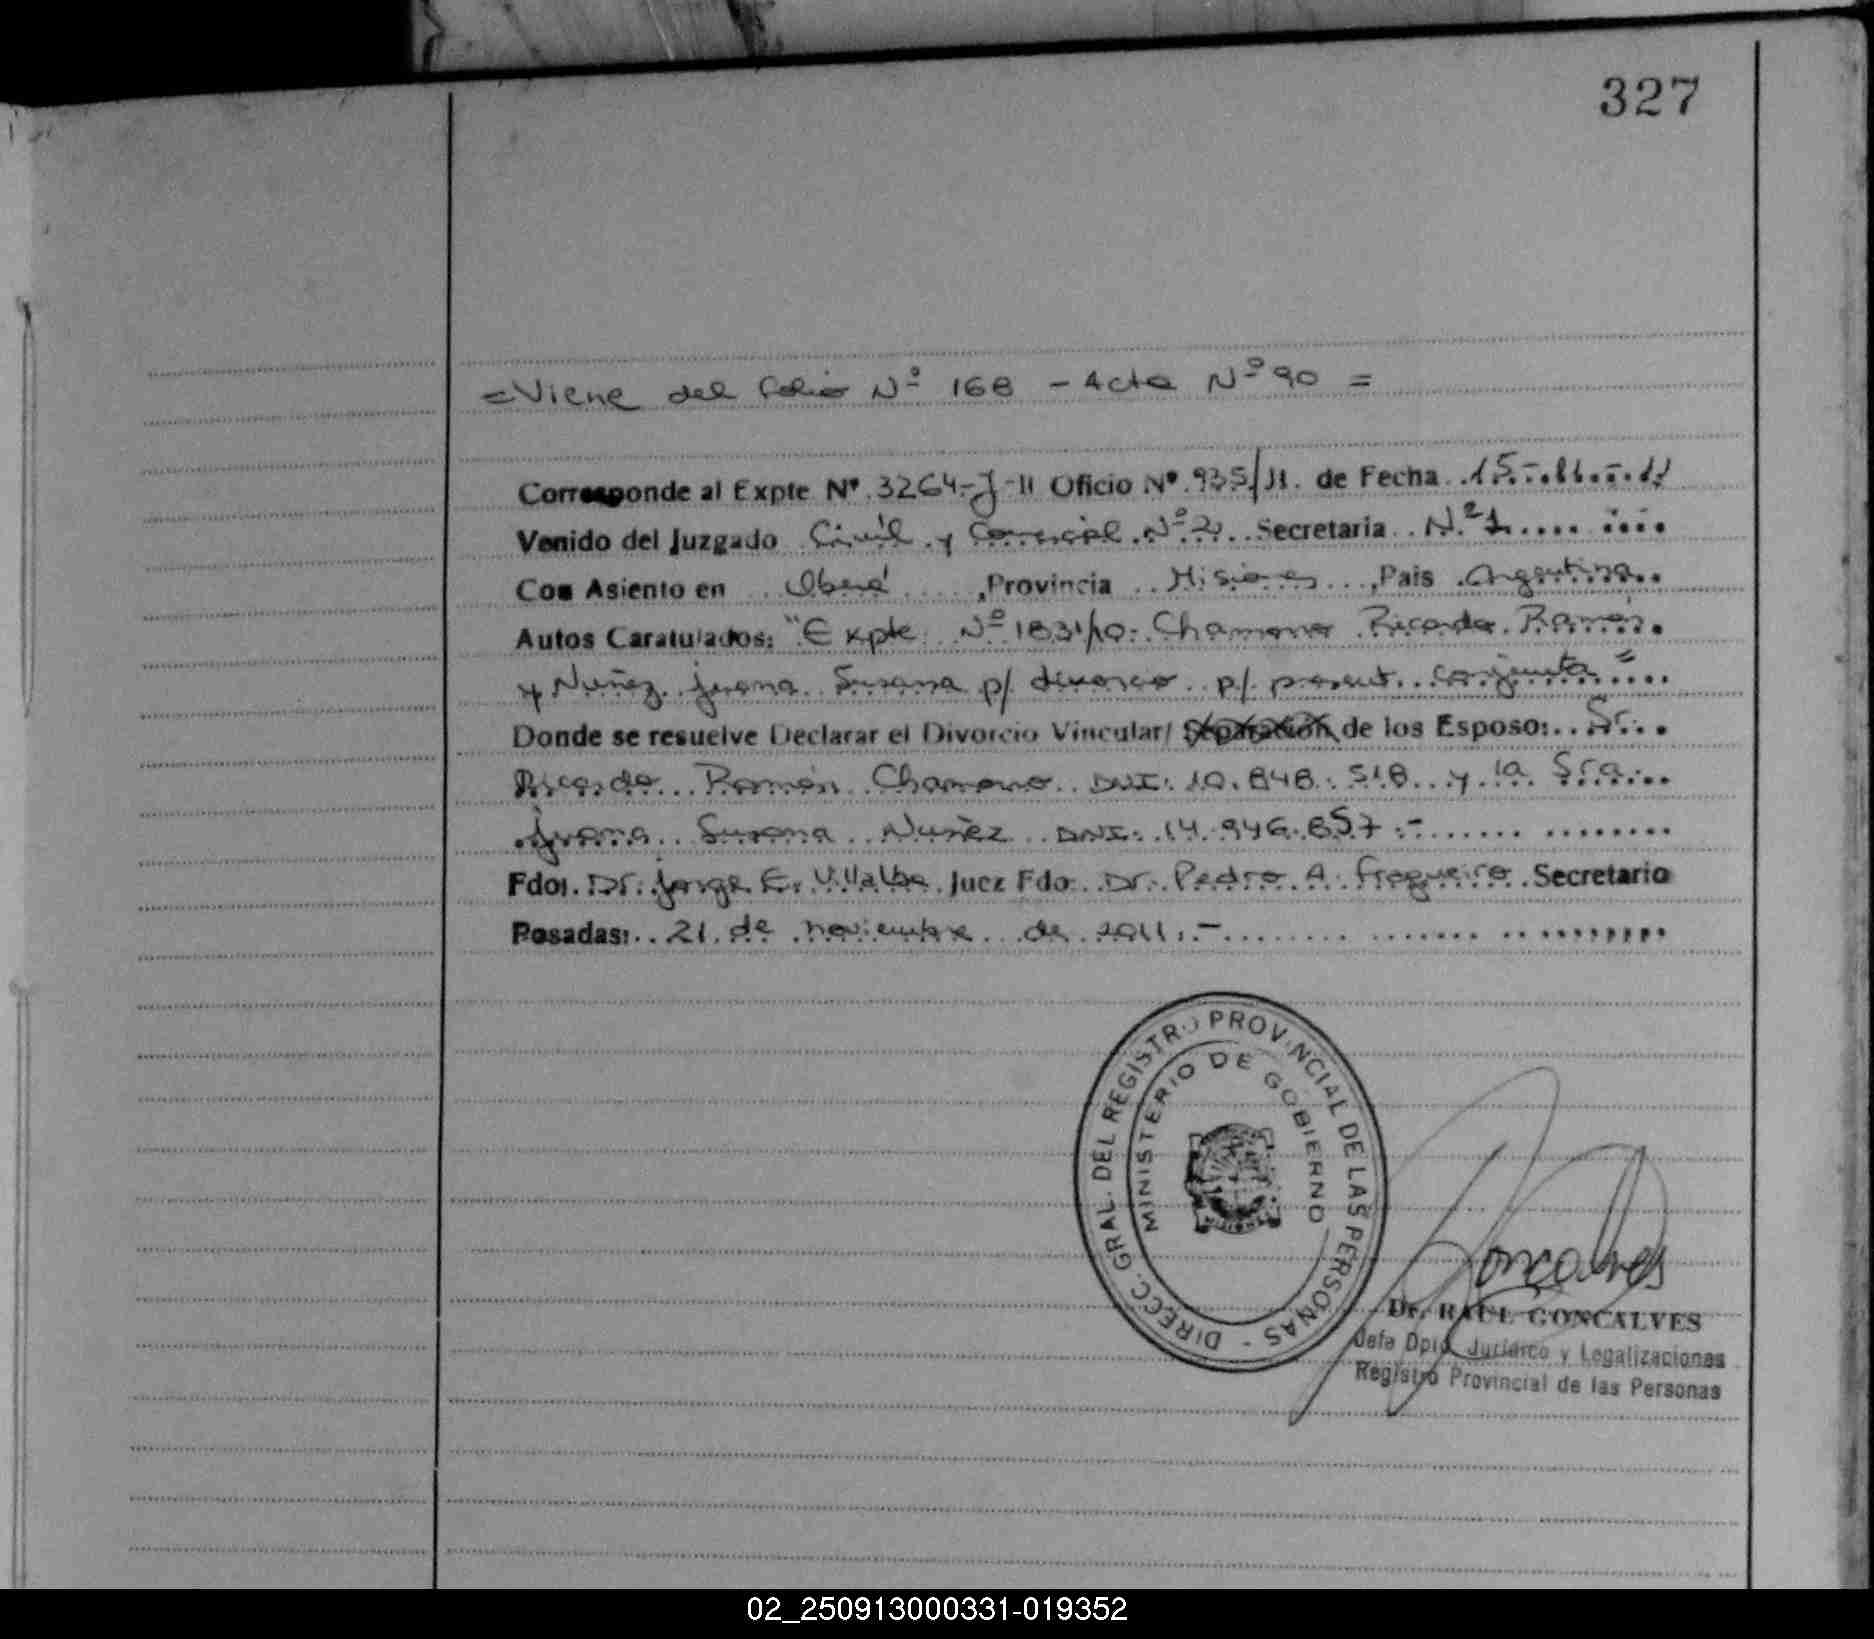 327
= Viene del folio Nº 168 - Acta Nº 90 =
Corresponde al Expte Nº 3264-J-11 Oficio Nº 935/11. de Fecha 15.-11.-11
Venido del Juzgado Civil y Comercial Nº 2 Secretaria Nº 1
Con Asiento en Oberá, Provincia Misiones, Pais Argentina
Autos Caratulados: "Expte Nº 1831/10: Chamorro Ricardo Ramón
y Nuñez Juana Susana p/ divorcio p/ present. conjunta"
Donde se resuelve Declarar el Divorcio Vincular/ Separación de los Esposo: Sr.
Ricardo Ramón Chamorro DNI: 10.848.518 y la Sra.
Juana Susana Nuñez DNI: 14.946.857.-
Fdo: Dr. Jorge E. Villalba Juez Fdo: Dr. Pedro A. Fragueiro Secretario
Posadas: 21 de noviembre de 2011.-
DIRECC. GRAL. DEL REGISTRO PROVINCIAL DE LAS PERSONAS -
MINISTERIO DE GOBIERNO
MISIONES
Goncalves
Dr. RAUL GONCALVES
Jefe Dpto. Jurídico y Legalizaciones
Registro Provincial de las Personas
02_250913000331-019352